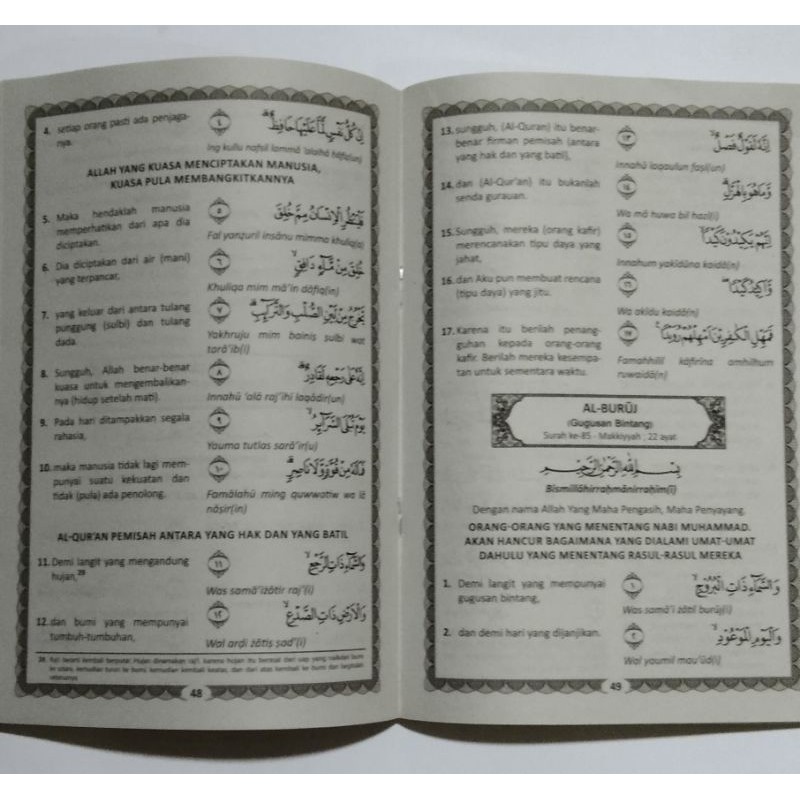 4. setiap orang pasti ada penjaga-
nya.
إِنْ كُلُّ نَفْسٍ لَّمَّا عَلَيْهَا حَافِظٌ ٤
Ing kullu nafsil lammā 'alaihā hāfiẓ(un)
ALLAH YANG KUASA MENCIPTAKAN MANUSIA,
KUASA PULA MEMBANGKITKANNYA
5. Maka hendaklah manusia
memperhatikan dari apa dia
diciptakan.
فَلْيَنْظُرِ الْإِنْسَانُ مِمَّ خُلِقَ ٥
Fal yanẓuril insānu mimma khuliq(a)
6. Dia diciptakan dari air (mani)
yang terpancar,
خُلِقَ مِنْ مَّاءٍ دَافِقٍ ٦
Khuliqa mim mā'in dāfiq(in)
7. yang keluar dari antara tulang
punggung (sulbi) dan tulang
dada.
يَخْرُجُ مِنْ بَيْنِ الصُّلْبِ وَالتَّرَائِبِ ٧
Yakhruju mim bainis sulbi wat
tarā'ib(i)
8. Sungguh, Allah benar-benar
kuasa untuk mengembalikan-
nya (hidup setelah mati).
إِنَّهُ عَلَى رَجْعِهِ لَقَادِرٌ ٨
Innahū 'alā raj'ihi laqādir(un)
9. Pada hari ditampakkan segala
rahasia,
يَوْمَ تُبْلَى السَّرَائِرُ ٩
Yauma tublas sarā'ir(u)
10. maka manusia tidak lagi mem-
punyai suatu kekuatan dan
tidak (pula) ada penolong.
فَمَا لَهُ مِنْ قُوَّةٍ وَّلَا نَاصِرٍ ١٠
Famālahū ming quwwatiw wa lā
nāṣir(in)
AL-QUR'AN PEMISAH ANTARA YANG HAK DAN YANG BATIL
11. Demi langit yang mengandung
hujan,
وَالسَّمَاءِ ذَاتِ الرَّجْعِ ١١
Was samā'i żātir raj'(i)
12. dan bumi yang mempunyai
tumbuh-tumbuhan,
وَالْأَرْضِ ذَاتِ الصَّدْعِ ١٢
Wal arḍi żātis ṣad'(i)
48
13. sungguh, (Al-Quran) itu benar-
benar firman pemisah (antara
yang hak dan yang batil),
إِنَّهُ لَقَوْلٌ فَصْلٌ ١٣
Innahū laqaulun faṣl(un)
14. dan (Al-Qur'an) itu bukanlah
senda gurauan.
وَمَا هُوَ بِالْهَزْلِ ١٤
Wa mā huwa bil hazl(i)
15. Sungguh, mereka (orang kafir)
merencanakan tipu daya yang
jahat,
إِنَّهُمْ يَكِيدُونَ كَيْدًا ١٥
Innahum yakīdūna kaidā(n)
16. dan Aku pun membuat rencana
(tipu daya) yang jitu.
وَأَكِيدُ كَيْدًا ١٦
Wa akīdu kaidā(n)
17. Karena itu berilah penang-
guhan kepada orang-orang
kafir. Berilah mereka kesempa-
tan untuk sementara waktu.
فَمَهِّلِ الْكَافِرِينَ أَمْهِلْهُمْ رُوَيْدًا ١٧
Famahhilil kāfirīna amhilhum
ruwaidā(n)
AL-BURŪJ
(Gugusan Bintang)
Surah ke-85 - Makkiyyah ; 22 ayat
بِسْمِ اللَّهِ الرَّحْمَنِ الرَّحِيمِ
Bismillāhirraḥmānirraḥīm(i)
Dengan nama Allah Yang Maha Pengasih, Maha Penyayang.
ORANG-ORANG YANG MENENTANG NABI MUHAMMAD.
AKAN HANCUR BAGAIMANA YANG DIALAMI UMAT-UMAT
DAHULU YANG MENENTANG RASUL-RASUL MEREKA
1. Demi langit yang mempunyai
gugusan bintang,
وَالسَّمَاءِ ذَاتِ الْبُرُوجِ ١
Was samā'i żātil burūj(i)
2. dan demi hari yang dijanjikan.
وَالْيَوْمِ الْمَوْعُودِ ٢
Wal yaumil mau'ūd(i)
49